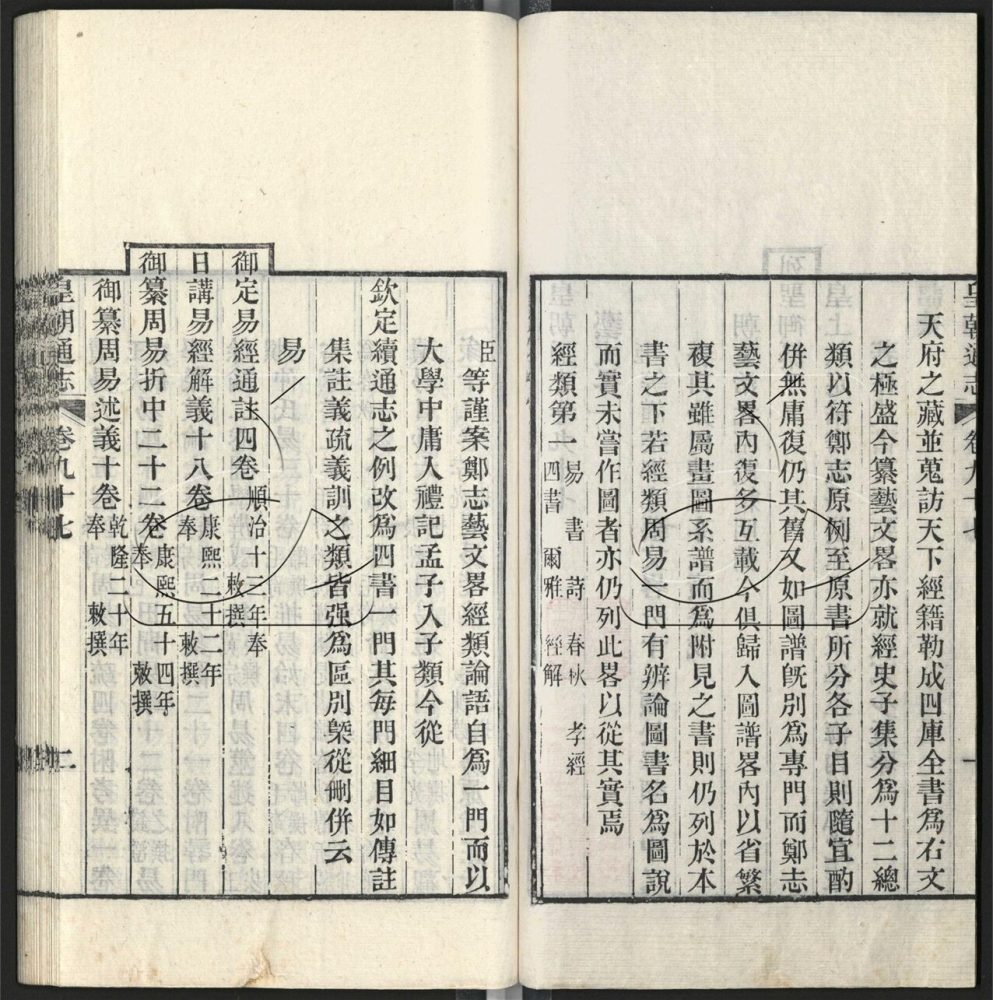 皇朝通志 卷九十七 一
天府之藏並蒐訪天下經籍勒成四庫全書爲右文
之極盛今纂藝文畧亦就經史子集分爲十二總
類以符鄭志原例至原書所分各子目則隨宜酌
併無庸復仍其舊又如圖譜旣別爲專門而鄭志
藝文畧內復多互載今俱歸入圖譜畧內以省繁
複其雖屬畫圖系譜而爲附見之書則仍列於本
書之下若經類周易一門有辨論圖書名爲圖說
而實未嘗作圖者亦仍列此畧以從其實焉
經類第一 易 書 詩 春秋 孝經 四書 爾雅 經解
臣等謹案鄭志藝文畧經類論語自爲一門而以
大學中庸入禮記孟子入子類今從
欽定續通志之例改爲四書一門其每門細目如傳註
集註義疏義訓之類皆强爲區別槩從刪併云
易
御定易經通註四卷 順治十三年奉敕撰
日講易經解義十八卷 康熙二十二年奉敕撰
御纂周易折中二十二卷 康熙五十四年奉敕撰
御纂周易述義十卷 乾隆二十年奉敕撰
皇朝通志 卷九十七 二